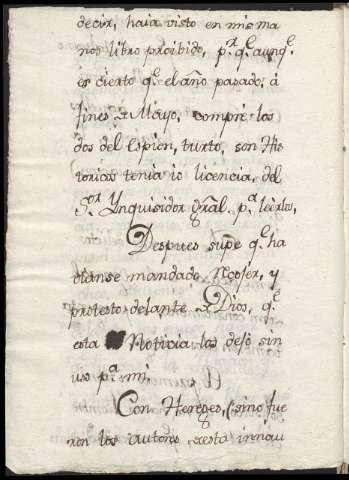 decir, haia visto en mis ma
nos libro proibido, p.r q.e aunq.e
es cierto q.e el año pasado, á
fines de Mayo, compré los
dos del Espion, turco, son His
toricos tenia io licencia, del
S.or Ynquisidor gral. p.a leerlos,
Despues supe q.e ha
bianse mandado Rcojer, y
protesto delante de Dios, q.e
esta Noticia los dejó sin
uso p.a mi.
Con Hereges, (sino fue
ron los autores desta innou